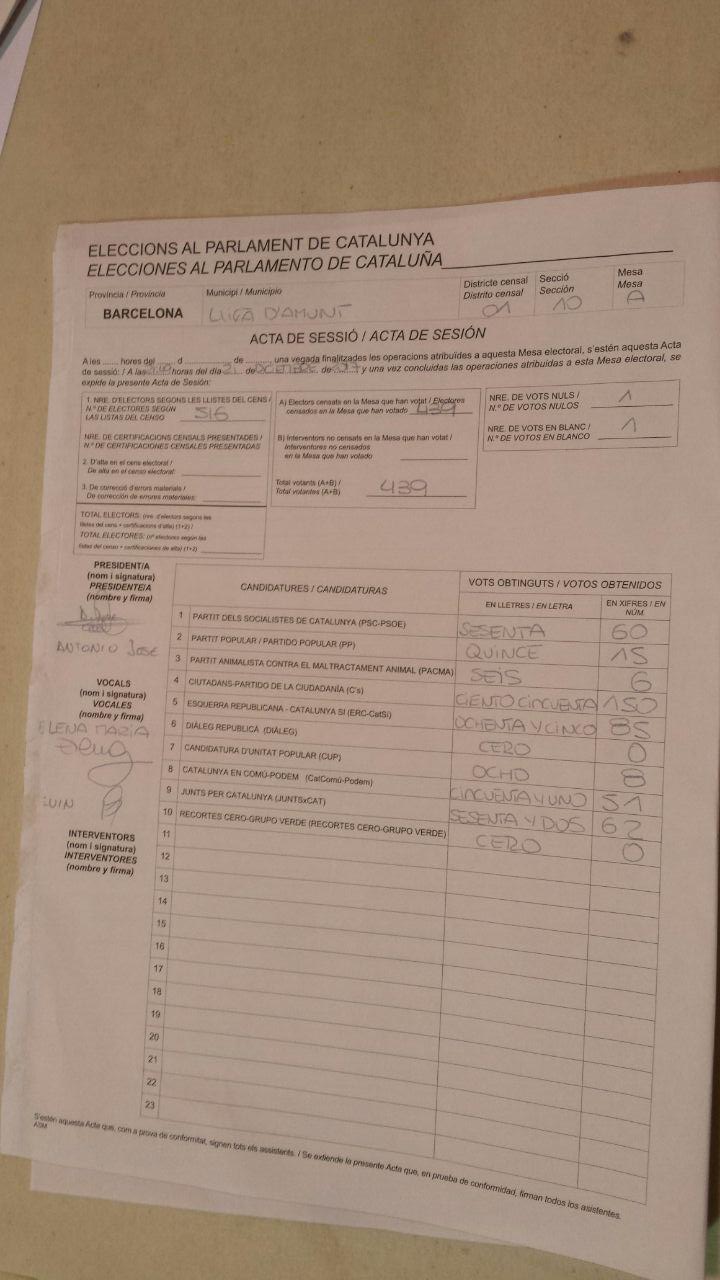 ELECCIONS AL PARLAMENT DE CATALUNYA
ELECCIONES AL PARLAMENTO DE CATALUÑA
Província / Provincia
Municipi / Municipio
Districte censal
Distrito censal
Secció
Sección
Mesa
Mesa
BARCELONA
LLIÇÀ D'AMUNT
01
10
A
ACTA DE SESSIÓ / ACTA DE SESIÓN
A les ...... hores del ..... d ................ de ........., una vegada finalitzades les operacions atribuïdes a aquesta Mesa electoral, s'estén aquesta Acta
de sessió: / A las horas del día 21 de DICIEMBRE de 2017 y una vez concluidas las operaciones atribuidas a esta Mesa electoral, se
expide la presente Acta de Sesión:
1. NRE. D'ELECTORS SEGONS LES LLISTES DEL CENS /
N.º DE ELECTORES SEGÚN
LAS LISTAS DEL CENSO 516
NRE. DE CERTIFICACIONS CENSALS PRESENTADES /
N.º DE CERTIFICACIONES CENSALES PRESENTADAS
2. D'alta en el cens electoral /
De alta en el censo electoral:
3. De correcció d'errors materials /
De corrección de errores materiales:
TOTAL ELECTORS: (nre. d'electors segons les
llistes del cens + certificacions d'alta) (1+2) /
TOTAL ELECTORES: (nº electores según las
listas del censo + certificaciones de alta) (1+2)
A) Electors censats en la Mesa que han votat / Electores
censados en la Mesa que han votado 439
B) Interventors no censats en la Mesa que han votat /
Interventores no censados
en la Mesa que han votado
Total votants (A+B) /
Total votantes (A+B) 439
NRE. DE VOTS NULS /
N.º DE VOTOS NULOS 1
NRE. DE VOTS EN BLANC /
N.º DE VOTOS EN BLANCO 1
PRESIDENT/A
(nom i signatura)
PRESIDENTE/A
(nombre y firma)
ANTONIO JOSE
VOCALS
(nom i signatura)
VOCALES
(nombre y firma)
ELENA MARÍA
INTERVENTORS
(nom i signatura)
INTERVENTORES
(nombre y firma)
CANDIDATURES / CANDIDATURAS
VOTS OBTINGUTS / VOTOS OBTENIDOS
EN LLETRES / EN LETRA
EN XIFRES / EN NÚM.
1 PARTIT DELS SOCIALISTES DE CATALUNYA (PSC-PSOE) SESENTA 60
2 PARTIT POPULAR / PARTIDO POPULAR (PP) QUINCE 15
3 PARTIT ANIMALISTA CONTRA EL MALTRACTAMENT ANIMAL (PACMA) SEIS 6
4 CIUTADANS-PARTIDO DE LA CIUDADANÍA (C's) CIENTO CINCUENTA 150
5 ESQUERRA REPUBLICANA - CATALUNYA SÍ (ERC-CatSí) OCHENTA Y CINCO 85
6 DIÀLEG REPUBLICÀ (DIÀLEG) CERO 0
7 CANDIDATURA D'UNITAT POPULAR (CUP) OCHO 8
8 CATALUNYA EN COMÚ-PODEM (CatComú-Podem) CINCUENTA Y UNO 51
9 JUNTS PER CATALUNYA (JUNTSxCAT) SESENTA Y DOS 62
10 RECORTES CERO-GRUPO VERDE (RECORTES CERO-GRUPO VERDE) CERO 0
11
12
13
14
15
16
17
18
19
20
21
22
23
S'estén aquesta Acta que, com a prova de conformitat, signen tots els assistents. / Se extiende la presente Acta que, en prueba de conformidad, firman todos los asistentes.
ASM